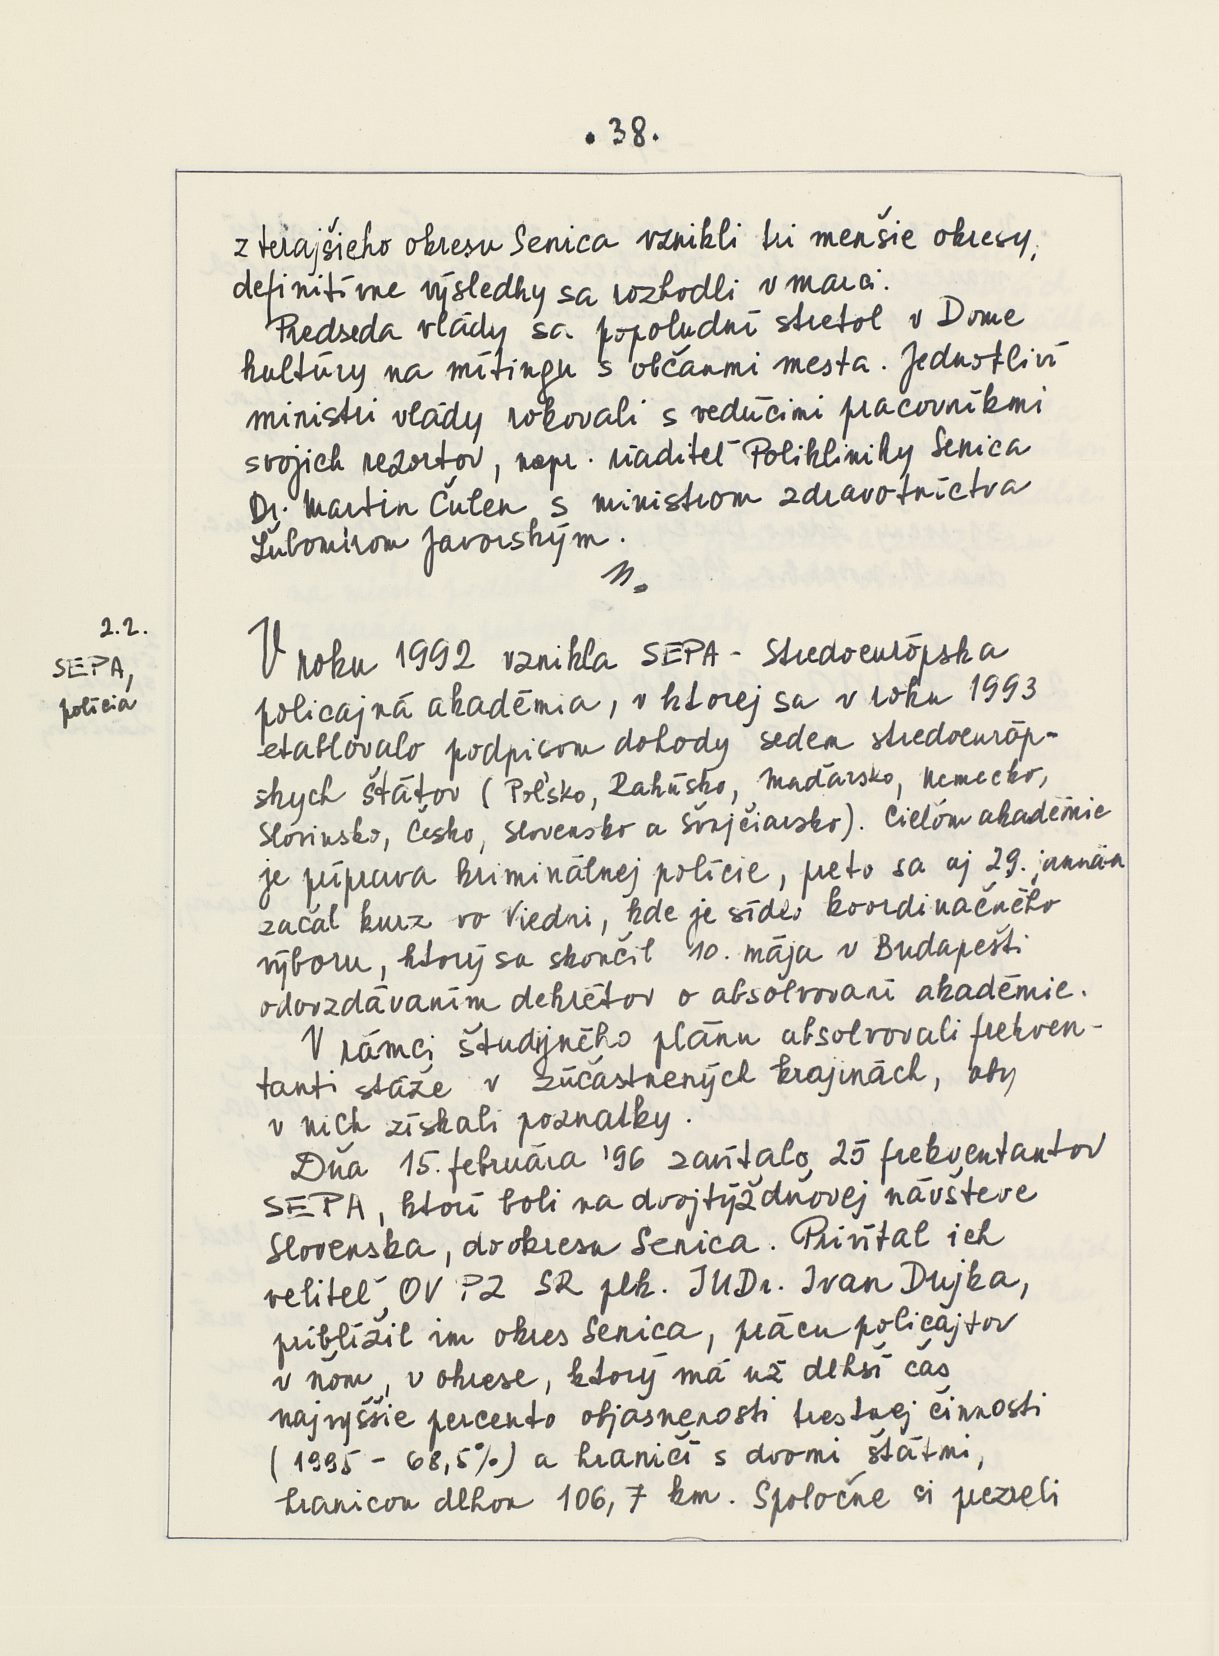 . 38.
z terajšieho okresu Senica vznikli tri menšie okresy,
definitívne výsledky sa rozhodli v marci.
Predseda vlády sa popoludní stretol v Dome
kultúry na mítingu s občanmi mesta. Jednotliví
ministri vlády rokovali s vedúcimi pracovníkmi
svojich rezortov, napr. riaditeľ Polikliniky Senica
Dr. Martin Čulen s ministrom zdravotníctva
Ľubomírom Javorským.
2.2.
SEPA,
polícia
V roku 1992 vznikla SEPA - Stredoeurópska
policajná akadémia, v ktorej sa v roku 1993
etablovalo podpisom dohody sedem stredoeuróp-
skych štátov (Poľsko, Rakúsko, Maďarsko, Nemecko,
Slovinsko, Česko, Slovensko a Švajčiarsko). Cieľom akadémie
je príprava kriminálnej polície, preto sa aj 29. januára
začal kurz vo Viedni, kde je sídlo koordinačného
výboru, ktorý sa skončil 10. mája v Budapešti
odovzdávaním dekrétov o absolvovaní akadémie.
V rámci študijného plánu absolvovali frekven-
tanti stáže v zúčastnených krajinách, aby
v nich získali poznatky.
Dňa 15. februára '96 zavítalo 25 frekventantov
SEPA, ktorí boli na dvojtýždňovej návšteve
Slovenska, do okresu Senica. Privítal ich
veliteľ OV PZ SR plk. JUDr. Ivan Dujka,
priblížil im okres Senica, prácu policajtov
v ňom, v okrese, ktorý má už dlhší čas
najvyššie percento objasnenosti trestnej činnosti
(1995 - 68,5%) a hraničí s dvomi štátmi,
hranicou dlhou 106,7 km. Spoločne si prezreli